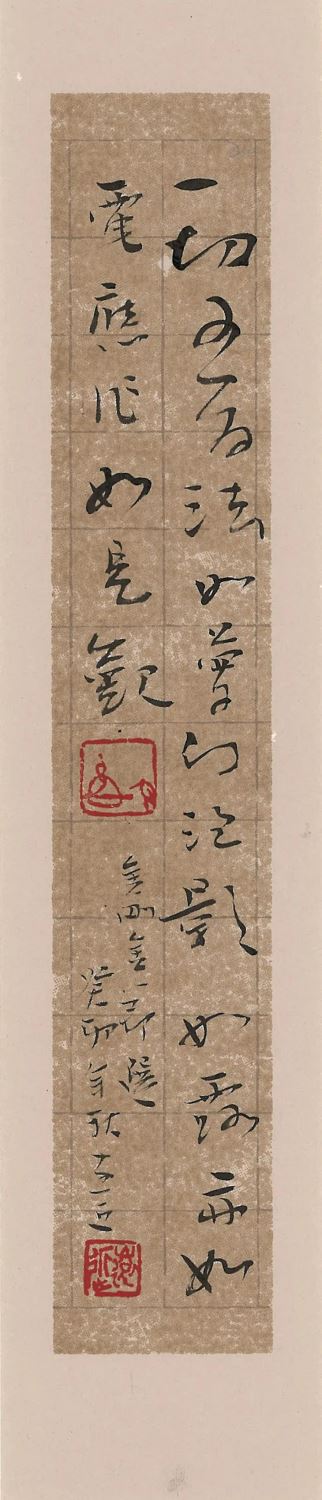 一切有為法如夢幻泡影如露亦如
電應作如是觀
金剛節選
癸卯年秋